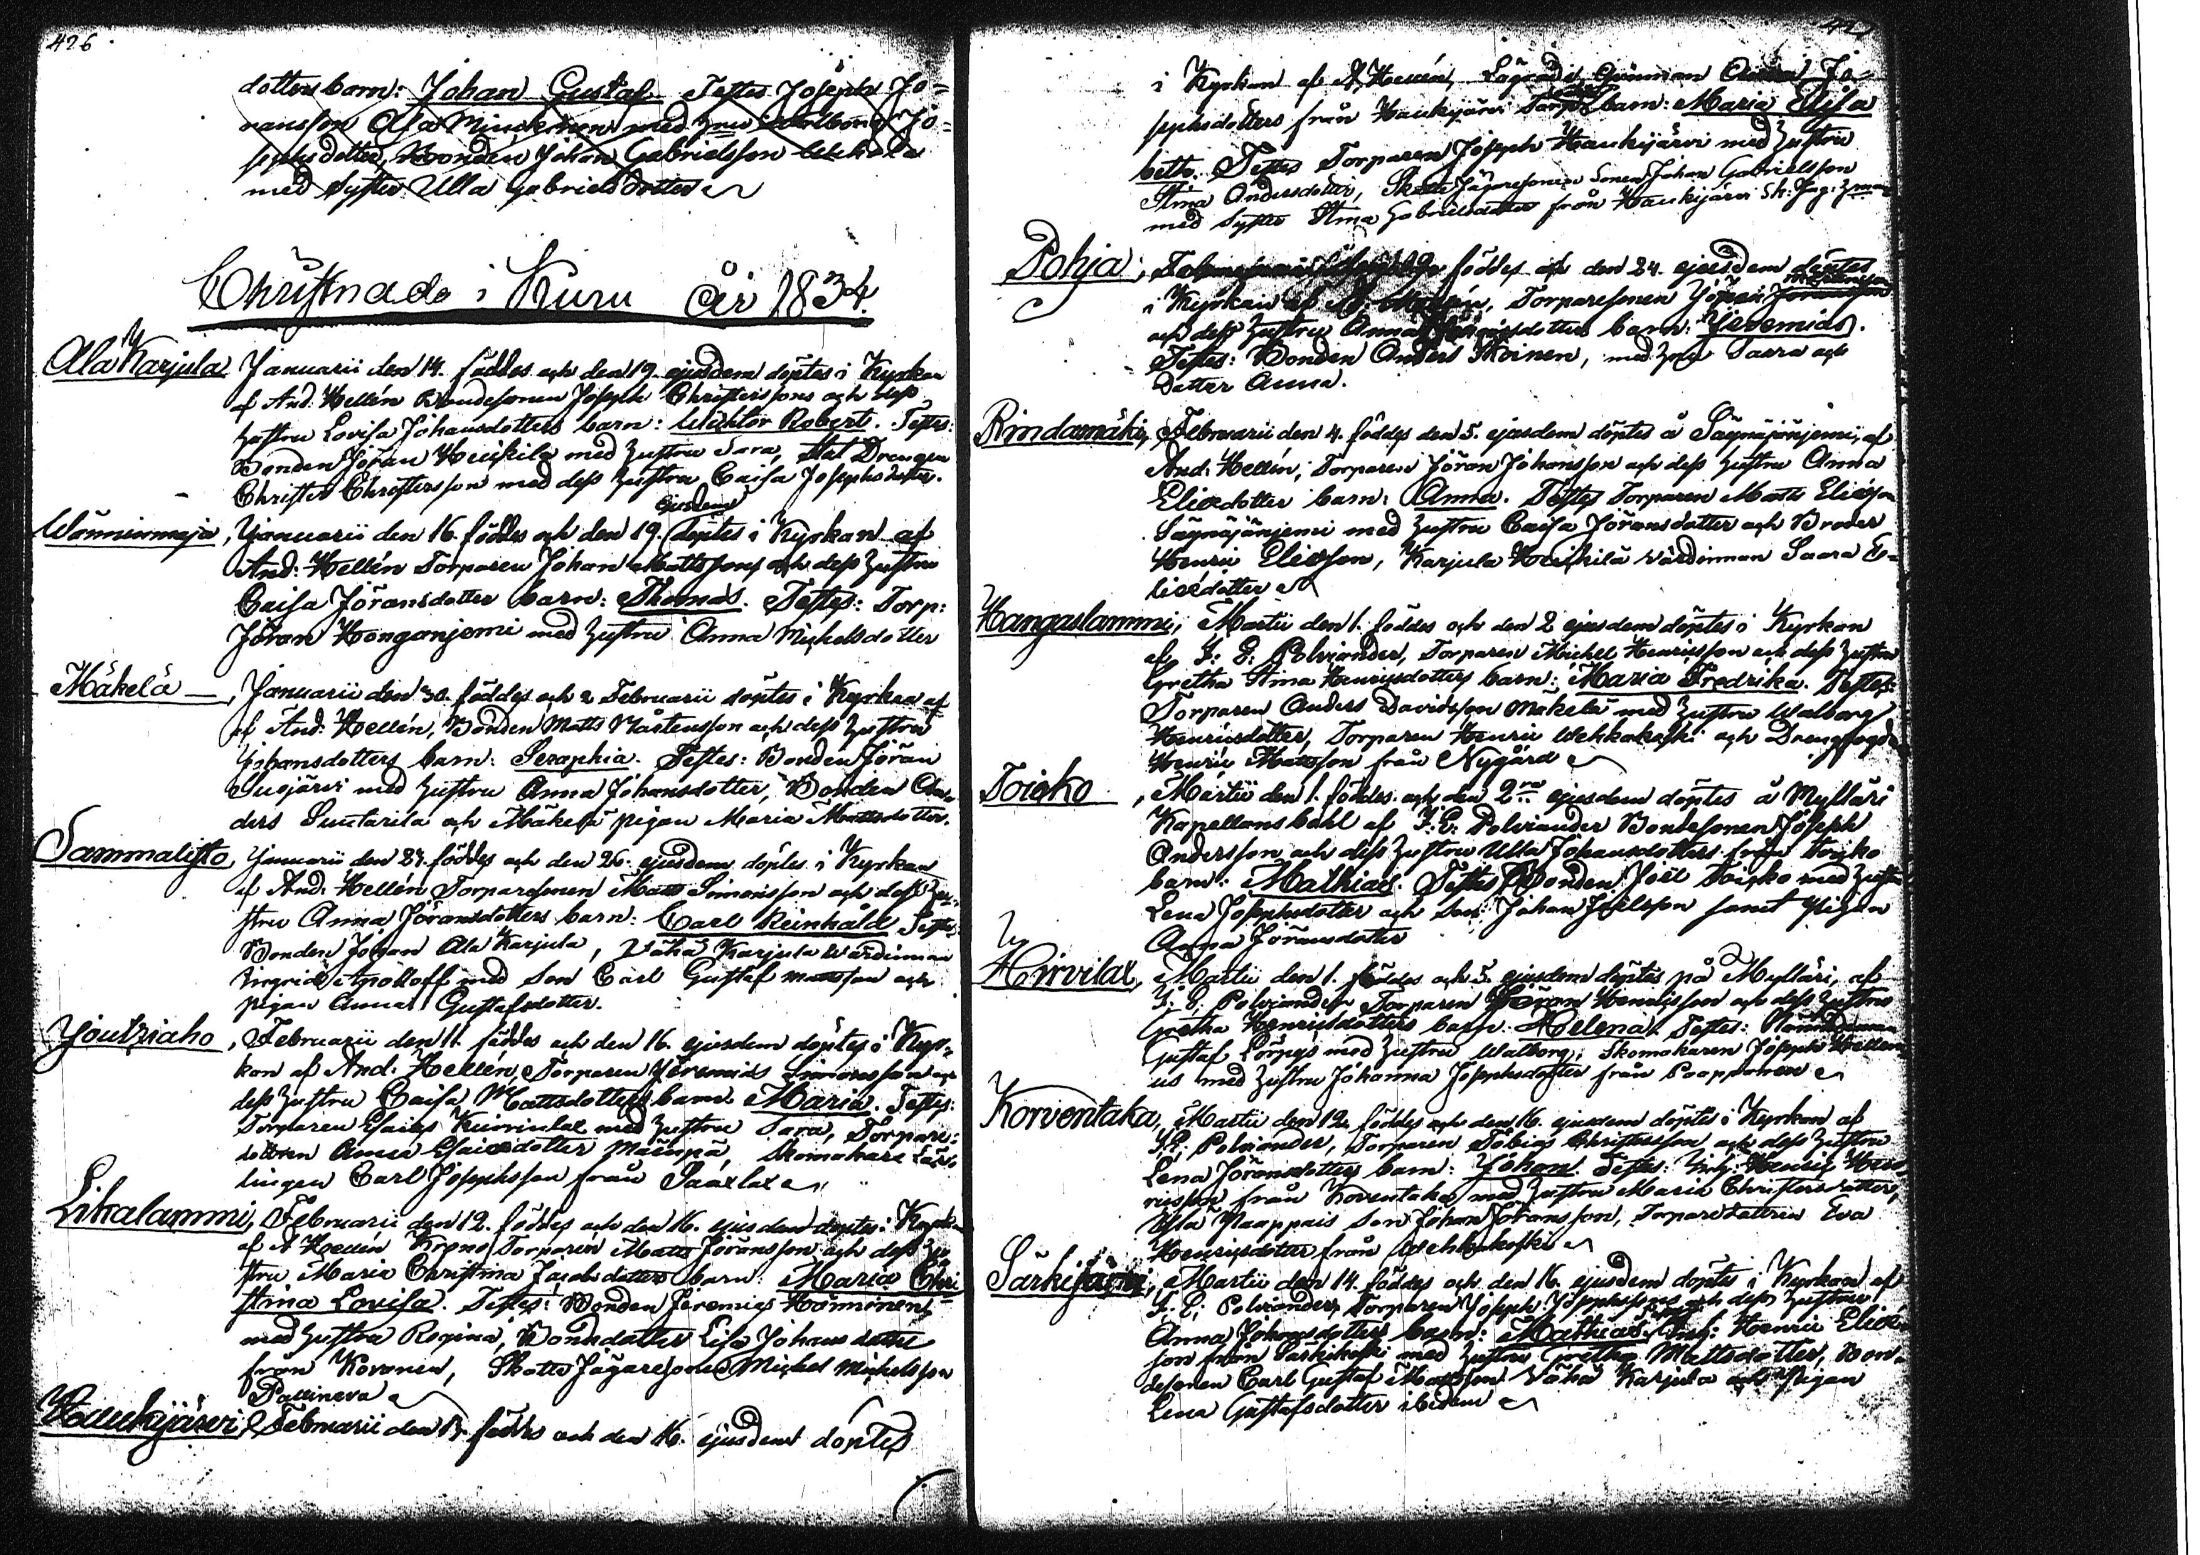 426
dottersbarn: Johan Gustaf Testes Joseph Jo=
ransson Ala Minckinen med
sephsdotter, Bonden Johan Gabrielsson
med Syster Ulla Gabrielsdotter
Christnade i Kuru år 1834.
Ala Karjula Januarii den 14. föddes och den 19. ejusdem döptes i Kyrkan
af And: Hellén Bondesonen Joseph Christerssons och dess
hustru Lovisa Johansdotters barn: Wicktor Robert. Testes:
Bonden Jöran Heickilä med hustru Sara, Drengen
Christer Christersson med dess hustru Caisa Josephsdotter.
ejusdem
Januarii den 16. föddes och den 19. döptes i Kyrkan af
And: Hellén Torparen Johan Mattssons och dess hustru
Caisa Jöransdotter barn: Thomas. Testes: Torp:
Jöran Honganjemi med hustru Anna Mickelsdotter
Mäkelä, Januarii den 30. föddes och 2 Februarii döptes i Kyrkan af
af And: Hellén, Bonden Matts Mårtensson och dess hustru
Johansdotters barn: Seraphia. Testes: Bonden Jöran
Susjärvi med hustru Anna Johansdotter, Bonden An=
ders Suntarila och Mäkelä pigan Maria Mattsdotter.
Sammalisto, Januarii den 24. föddes och den 26. ejusdem döptes i Kyrkan
af And: Hellén Torparesonen Matts Simonsson och dess hu=
stru Anna Jöransdotters barn: Carl Reinhåld Testes:
Bonden Johan Ala Karjula, Wähä Karjula Wärdinnan
Ingrid Apolloff med Son Carl Gustaf Mattsson och
pigan Anna Gustafsdotter.
Joutziaho, Februarii den 11. föddes och den 16. ejusdem döptes i Kyr=
kan af And: Hellén, Torparen Jeremias Simonsson och
dess hustru Caisa Mattsdotters barn Maria. Testes:
Torparen Esaias Kuorilax med hustru Sara, Torpare=
dottren Anna Esaiedotter Mäenpä, Skomakare Lär=
lingen Carl Josephsson från Sääxlax
Likalammi, Februarii den 12. föddes och den 16. ejusdem döptes i Kyrkan
af A Hellén Krono Torparen Matts Jöransson och dess hu=
stru Maria Christina Jacobsdotters barn: Maria Chri=
stina Lovisa. Testes: Bonden Jeremias Hänninen
med hustru Regina, Bondedotter Lisa Johansdotter
från Kovanen, Skatte Jägaresonen Mickel Mickelsson
Pallineva
Haukijärvi, Februarii den föddes och den 16. ejusdem döptes
427
i Kyrkan af A, Hellén, Qvinnan Jo=
sephsdotters från Haukijärvi barn: Maria Elisa
beth. Testes Torparen Joseph Haukijärvi med hustru
Stina Andersdotter, Skatte Jägaresonen Sonen Johan Gabrielsson
med Syster Stina Gabrielsdotter från Haukijärvi
Pohja, föddes och den 24. ejusdem döptes
i Kyrkan af A. Hellén, Torparesonen Johan
och dess hustru Anna barn: Jeremias.
Testes: Bonden Anders Skoinen, med Saara och
Dotter Anna.
Rindamäki, Februarii den 4. föddes den 5. ejusdem döptes å Sägnäjänjemi, af
And: Hellén, Torparen Jöran Johansson och dess hustru Anna
Eliædotter barn: Anna. Testes Torparen Matts Eliæson
Sägnäjänjemi med hustru Caisa Jöransdotter och Broder
Henric Eliæson, Karjula Heickilä Wärdinnan Saara E=
liædotter
Hangaslammi, Martii den 1. föddes och den 2 ejusdem döptes i Kyrkan
af J: E: Polviander, Torparen Michel Henricsson och dess hustru
Gretha Stina Henricsdotters barn: Maria Fredrika. Testes:
Torparen Anders Davidsson Mäkelä med hustru Walborg
Henricsdotter, Torparen Henric Wehkakoski och Drengfogden
Henric Mattsson från Nygård
Toicko, Martii den 1. föddes och den 2 ejusdem döptes å Mylläri
Kapellans bohl af J: E: Polviander Bondesonen Joseph
Andersson och dess hustru Ulla Johansdotters från Toicko
barn: Mathias. Testes Bonden Joël Toicko med hustru
Lena Josephsdotter och Son Johan Joelsson samt Pigan
Anna Jöransdotter
Hirvilax, Martii den 1. föddes och 5. ejusdem döptes på Mylläri, af
J: E: Polviander Torparen Jöran Henricsson och dess hustru
Gretha Henricsdotters barn: Helena. Testes:
Gustaf med hustru Walborg, Skomakaren Joseph
us med hustru Johanna Josephsdotter från Paappanen
Korventaka, Martii den 12. föddes och den 16. ejusdem döptes i Kyrkan af
J. E. Polviander, Torparen Tobias Christersson och dess hustru
Lena Jöransdotters barn: Johan Testes: Henric Hen=
ricsson från Korventaka med hustru Maria Christersdotter,
Son Johan Johansson, Torparedottren Eva
Henricsdotter från Wehkakoski
Särkijärvi, Martii den 14. föddes och den 16. ejusdem döptes i Kyrkan af
J. E: Polviander, Torparen Joseph Josephssons och dess hustrus
Anna Johansdotters barn: Mathias. Henric Eliæ=
son från Särkikoski med hustru Gretha Mattsdotter, Bon=
desonen Carl Gustaf Mattsson Wähä Karjula och Pigan
Lena Gustafsdotter ibidem